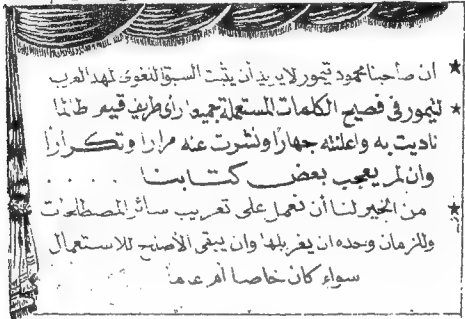 ★ ان صاحبنا محمود تيمور لا يريد أن يثبت السبق اللغوى لهذ العرب
★ لتيمور فى فصيح الكلمات المستعملة جميعا رأى طريف قيم طالما
ناديت به واعلنته جهارا ونشرت عنه مرارا وتكرارا
وان لم يعجب بعض كتابنا . . . . .
★ من الخير لنا أن نعمل على تعريب سائر المصطلحات
وللزمان وحده ان يغربلها وان يبقى الأصلح للاستعمال
سواء كان خاصا أم عاما